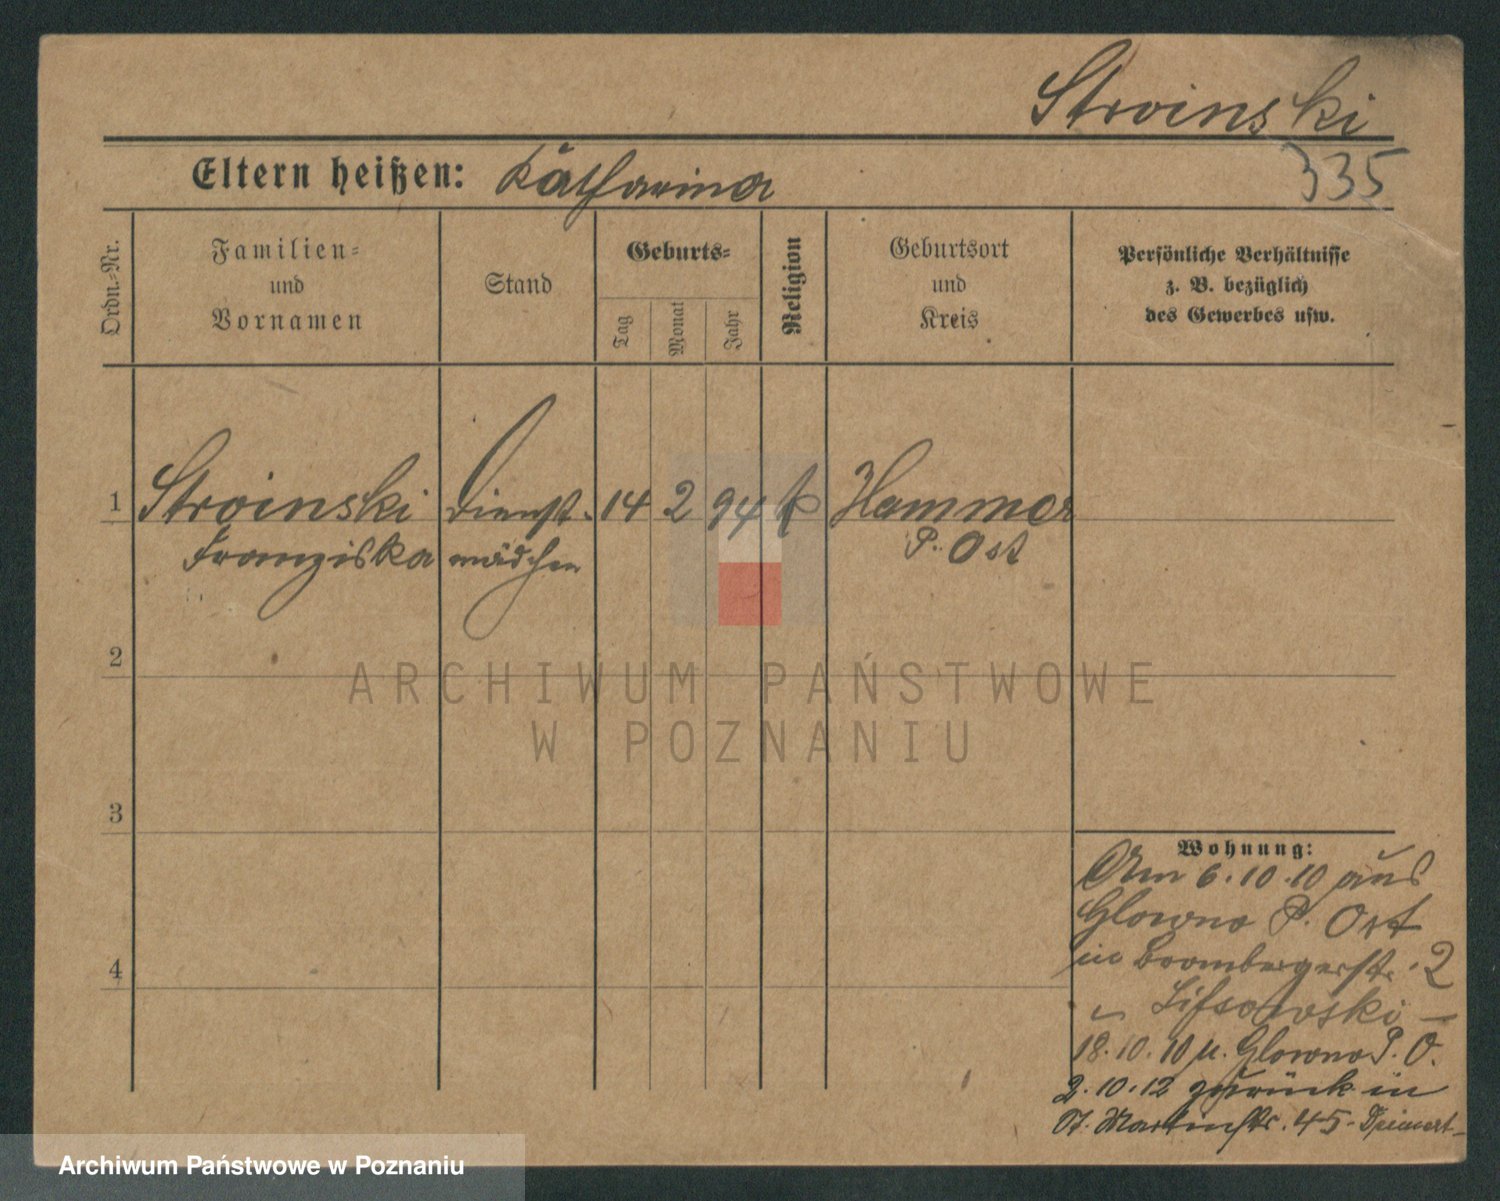 Stroinski
335
Eltern heißen: Katharina
Ordn.=Nr.
Familien=
und
Vornamen
Stand
Geburts=
Tag
Monat
Jahr
Religion
Geburtsort
und
Kreis
Persönliche Verhältnisse
z. B. bezüglich
des Gewerbes usw.
1 Stroinski Dienst- 14 2 94 k Hammer
Franziska mädchen P. Ost
2
3
4
ARCHIWUM PAŃSTWOWE
W POZNANIU
Wohnung:
Am 6.10.10 aus
Glowno P. Ost
in Brombergerstr. 2
18.10.10 n. Glowno P. O.
2.10.12 zurück in
St. Martinstr. 45-
Archiwum Państwowe w Poznaniu